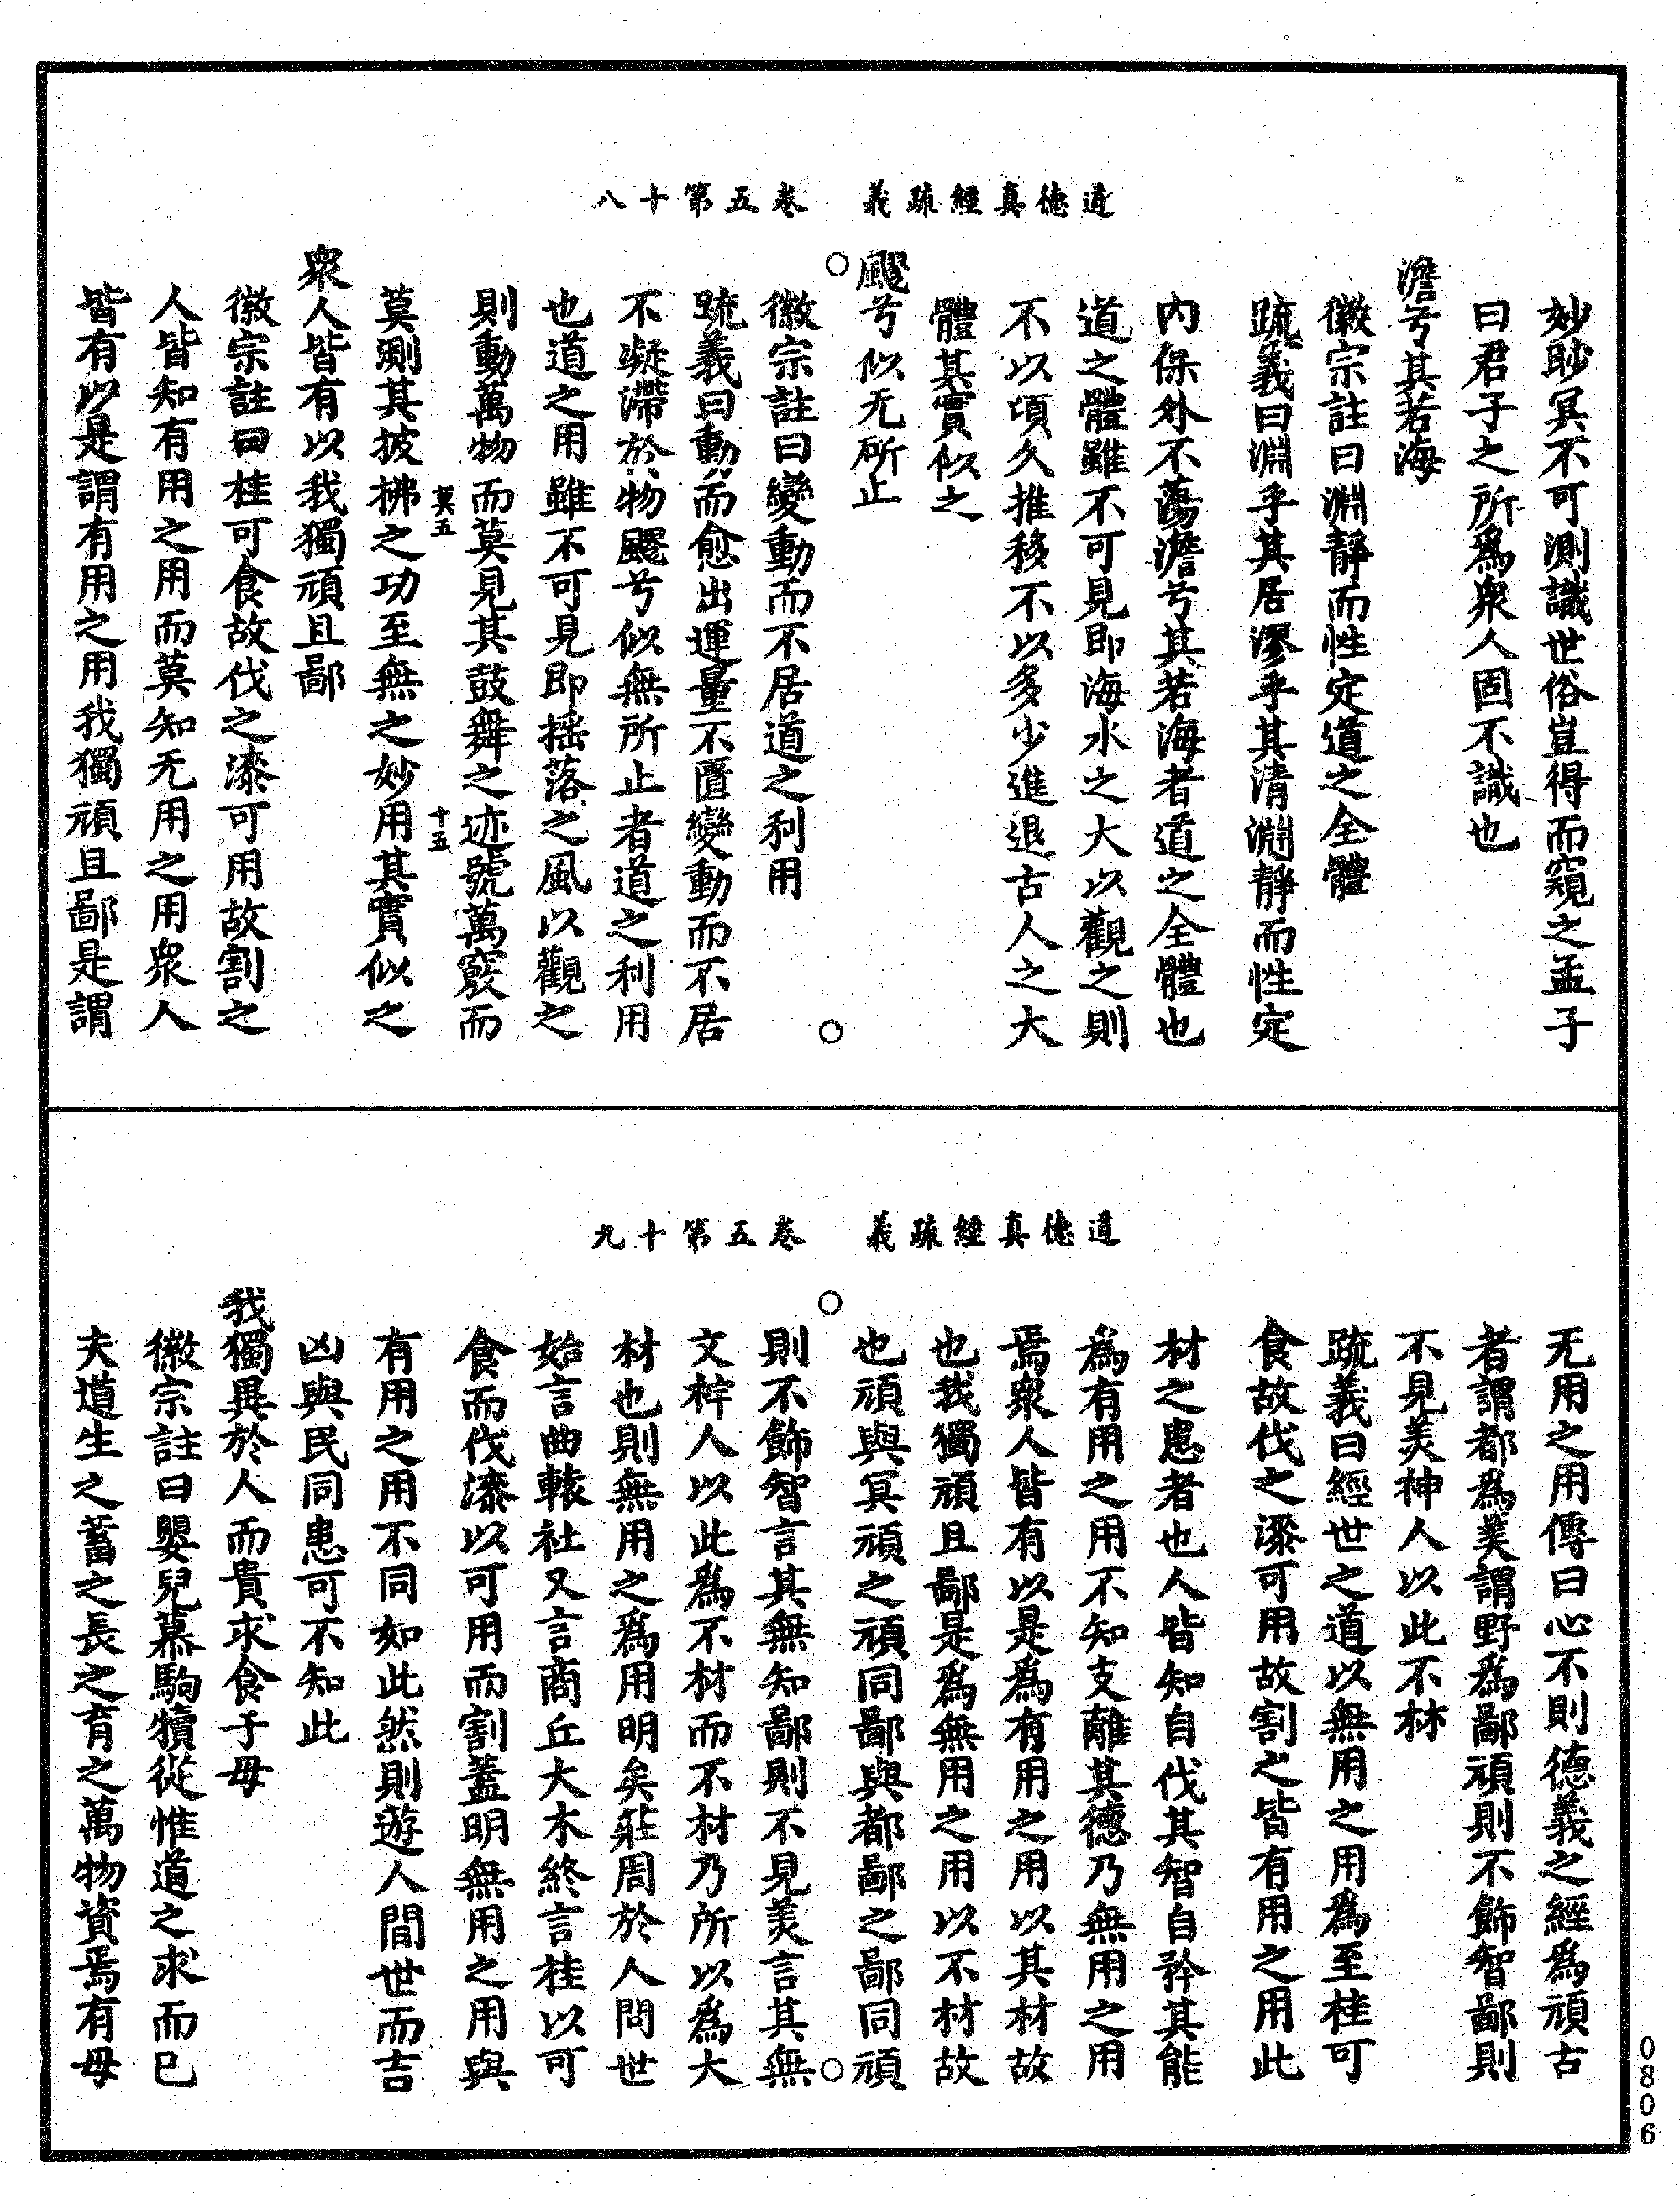 道德真經疏義　卷五第十八
妙眇冥不可測識世俗豈得而窺之孟子
曰君子之所爲衆人固不識也
澹兮其若海
徽宗註曰淵靜而性定道之全體
疏義曰淵乎其居漻乎其清淵靜而性定
內保外不蕩澹兮其若海者道之全體也
道之體雖不可見即海水之大以觀之則
不以頃久推移不以多少進退古人之大
體其實似之
飂兮似无所止
徽宗註曰變動而不居道之利用
疏義曰動而愈出運量不匱變動而不居
不凝滯於物飂兮似無所止者道之利用
也道之用雖不可見即搖落之風以觀之
則動萬物而莫見其鼓舞之迹號萬竅而
莫五　十五
莫測其披拂之功至無之妙用其實似之
衆人皆有以我獨頑且鄙
徽宗註曰桂可食故伐之漆可用故割之
人皆知有用之用而莫知无用之用衆人
皆有以是謂有用之用我獨頑且鄙是謂
道德真經疏義　卷五第十九
无用之用傳曰心不則德義之經爲頑古
者謂都爲美謂野爲鄙頑則不飾智鄙則
不見美神人以此不材
疏義曰經世之道以無用之用爲至桂可
食故伐之漆可用故割之皆有用之用此
材之患者也人皆知自伐其智自矜其能
爲有用之用不知支離其德乃無用之用
焉衆人皆有以是爲有用之用以其材故
也我獨頑且鄙是爲無用之用以不材故
也頑與冥頑之頑同鄙與都鄙之鄙同頑
則不飾智言其無知鄙則不見美言其無
文梓人以此爲不材而不材乃所以爲大
材也則無用之爲用明矣莊周於人間世
始言曲轅社又言商丘大木終言桂以可
食而伐漆以可用而割蓋明無用之用與
有用之用不同如此然則遊人間世而吉
凶與民同患可不知此
我獨異於人而貴求食于母
徽宗註曰嬰兒慕駒犢從惟道之求而已
夫道生之蓄之長之育之萬物資焉有母
0806